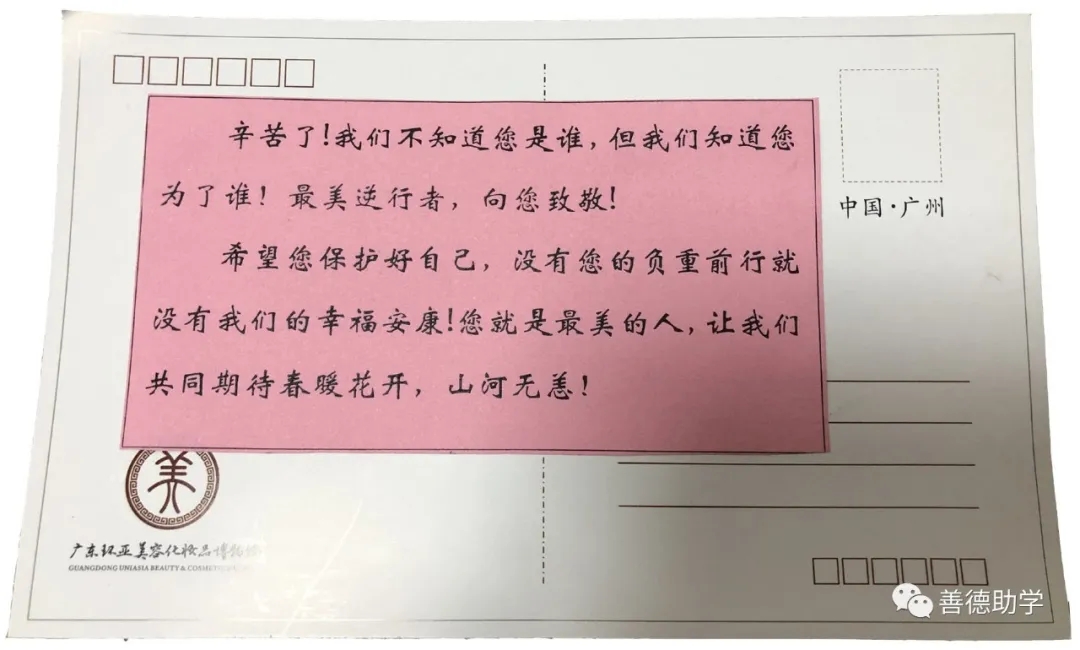 辛苦了!我们不知道您是谁,但我们知道您
为了谁!最美逆行者,向您致敬!
希望您保护好自己,没有您的负重前行就
没有我们的幸福安康!您就是最美的人,让我们
共同期待春暖花开,山河无恙!
中国·广州
美
广东环亚美容化妆品博物馆
GUANGDONG UNIASIA BEAUTY & COSMETICS
善德助学